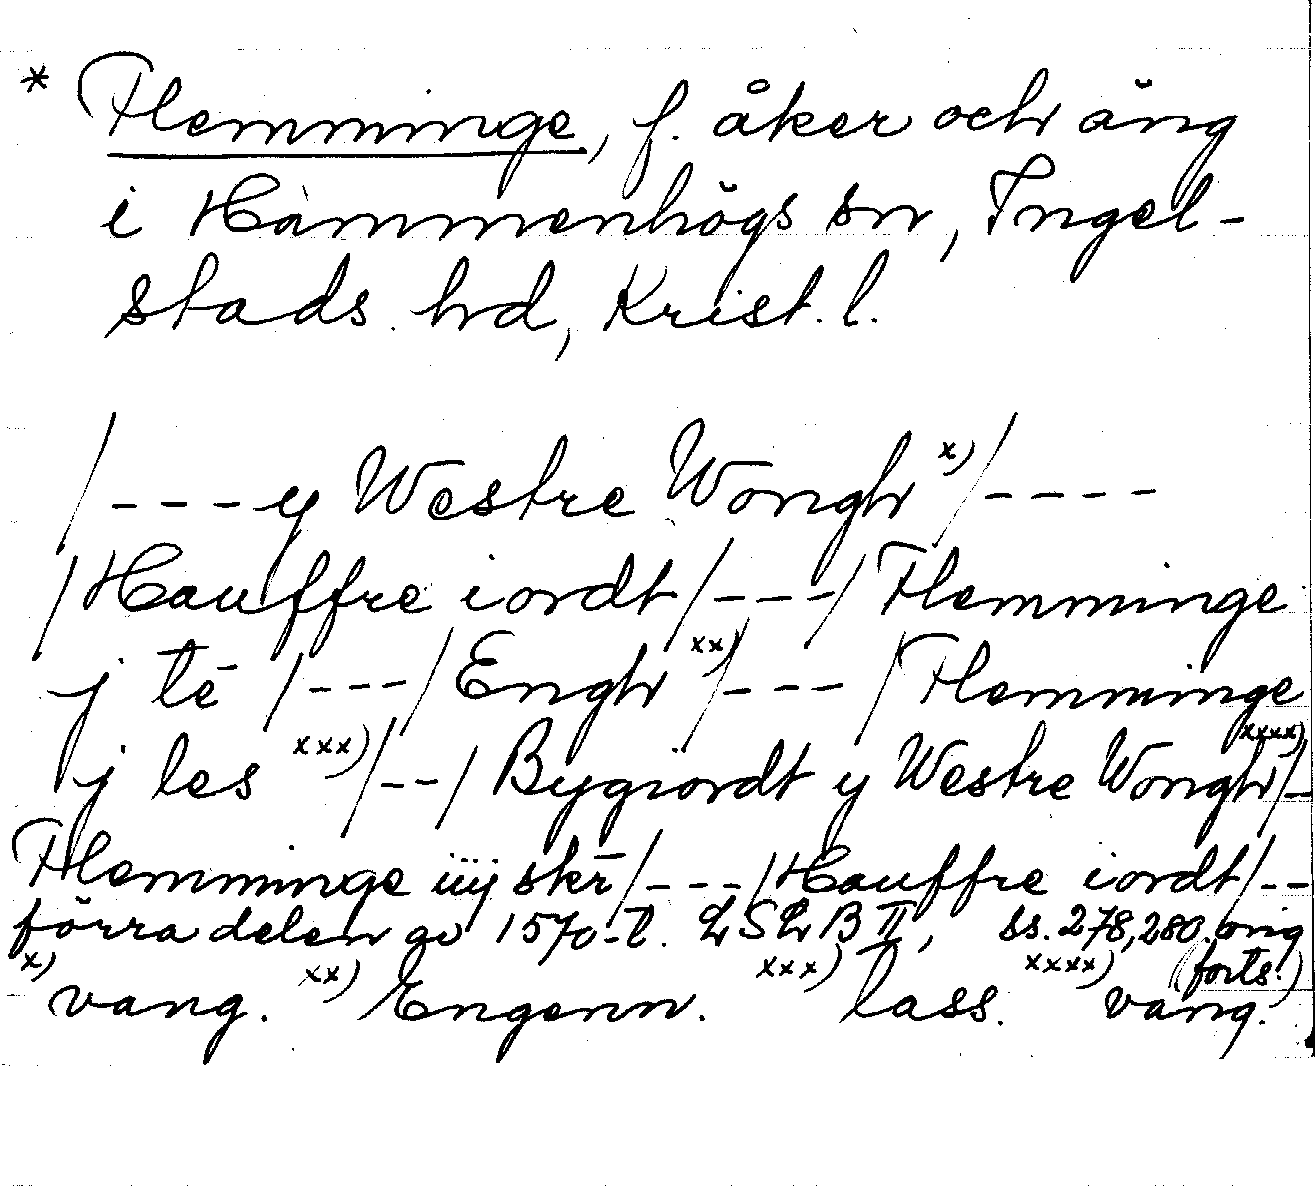 * Flemminge, f. åker och äng
i Hammenhögs sn, Ingel-
stads hd, Krist. l.
/---y Westre Wongh x)/----
/Hauffre iordt/---/Flemminge
j tē /---/Engh xx)/--- /Flemminge
j les xxx)/--/Bygiordt y Westre Wongh xxxx)/-
Flemminge iiij skr̄/---/Hauffre iordt/--
förra delen av 1570-t. LSLB II, ss. 278, 280. orig
(forts.)
x) vang. xx) Engenn. xxx) lass. xxxx) vang.